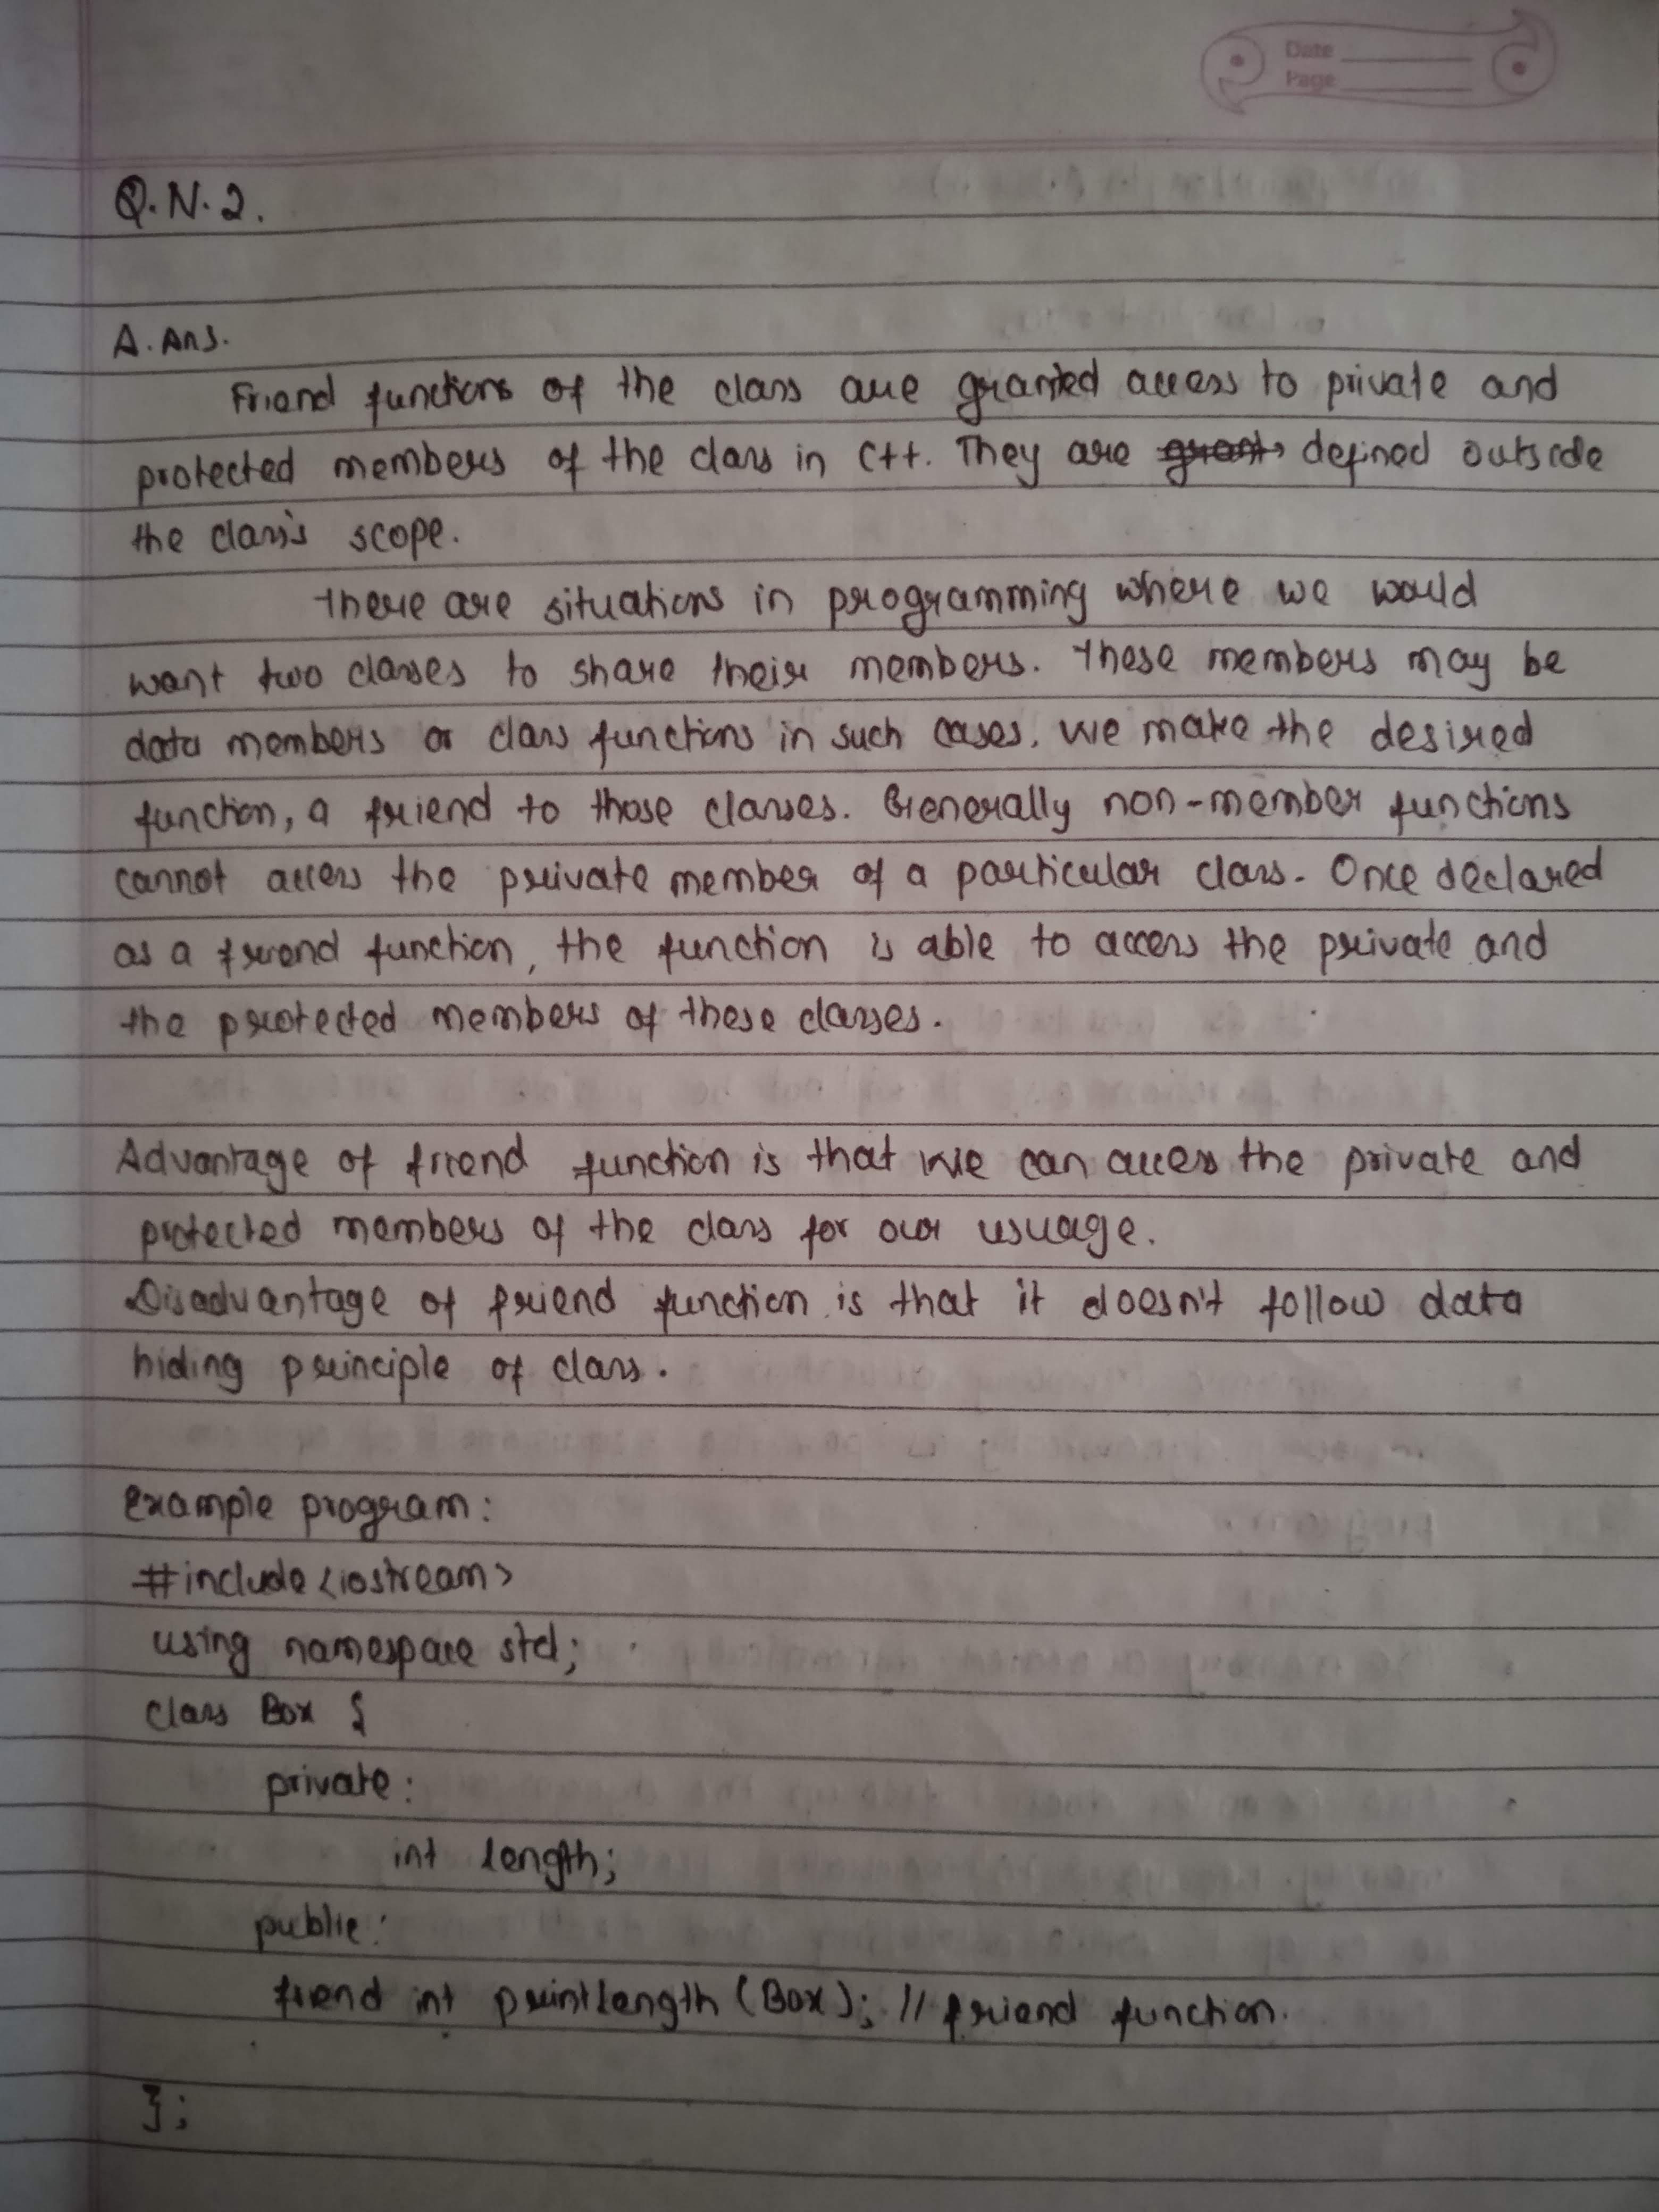 Date
Page
Q.N.2.
A. Ans.
Friend functions of the class are granted access to private and
protected members of the class in C++. They are defined outside
the class's scope.
There are situations in programming where we would
want two classes to share their members. These members may be
data members or class functions in such cases. we make the desired
function, a friend to those classes. Generally non-member functions
cannot access the private member of a particular class. Once declared
as a friend function, the function is able to access the private and
the protected members of these classes.
Advantage of friend function is that we can access the private and
protected members of the class for our usuage.
Disadvantage of friend function is that it doesn't follow data
hiding principle of class.
Example program:
#include <iostream>
using namespace std;
class Box {
private:
int length;
public:
friend int printLength (Box); // friend function.
};